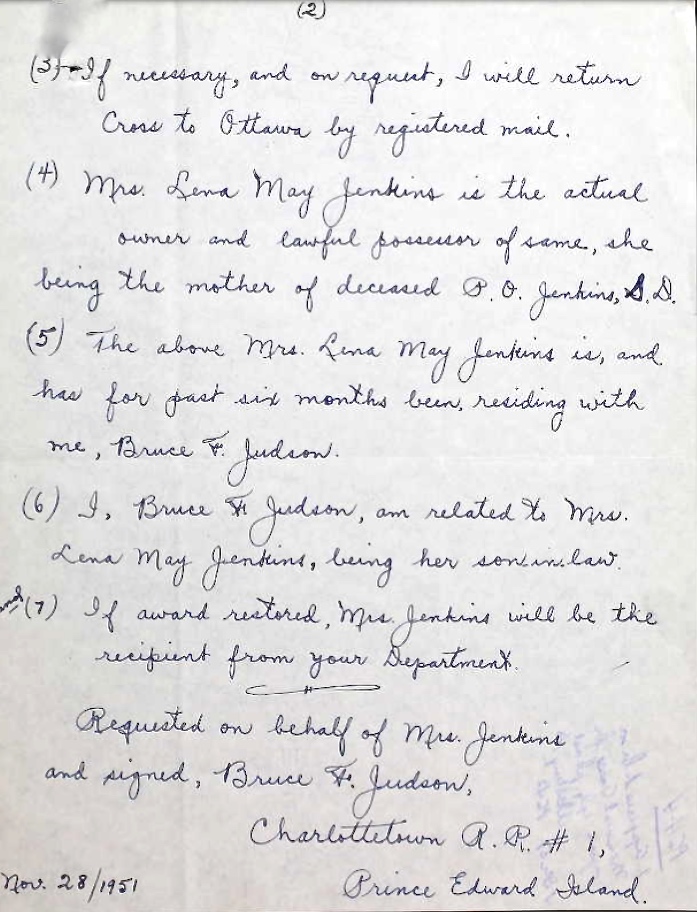 (2)
(3) - If necessary, and on request, I will return
Cross to Ottawa by registered mail.
(4) Mrs. Lena May Jenkins is the actual
owner and lawful possessor of same, she
being the mother of deceased P. O. Jenkins, S.D.
(5) The above Mrs. Lena May Jenkins is, and
has for past six months been, residing with
me, Bruce F. Judson.
(6) I, Bruce F Judson, am related to Mrs.
Lena May Jenkins, being her son-in-law.
and (7) If award restored, Mrs. Jenkins will be the
recipient from your Department.
Requested on behalf of Mrs. Jenkins
and signed, Bruce F. Judson,
Charlottetown R.R. # 1,
Nov. 28/1951 Prince Edward Island.